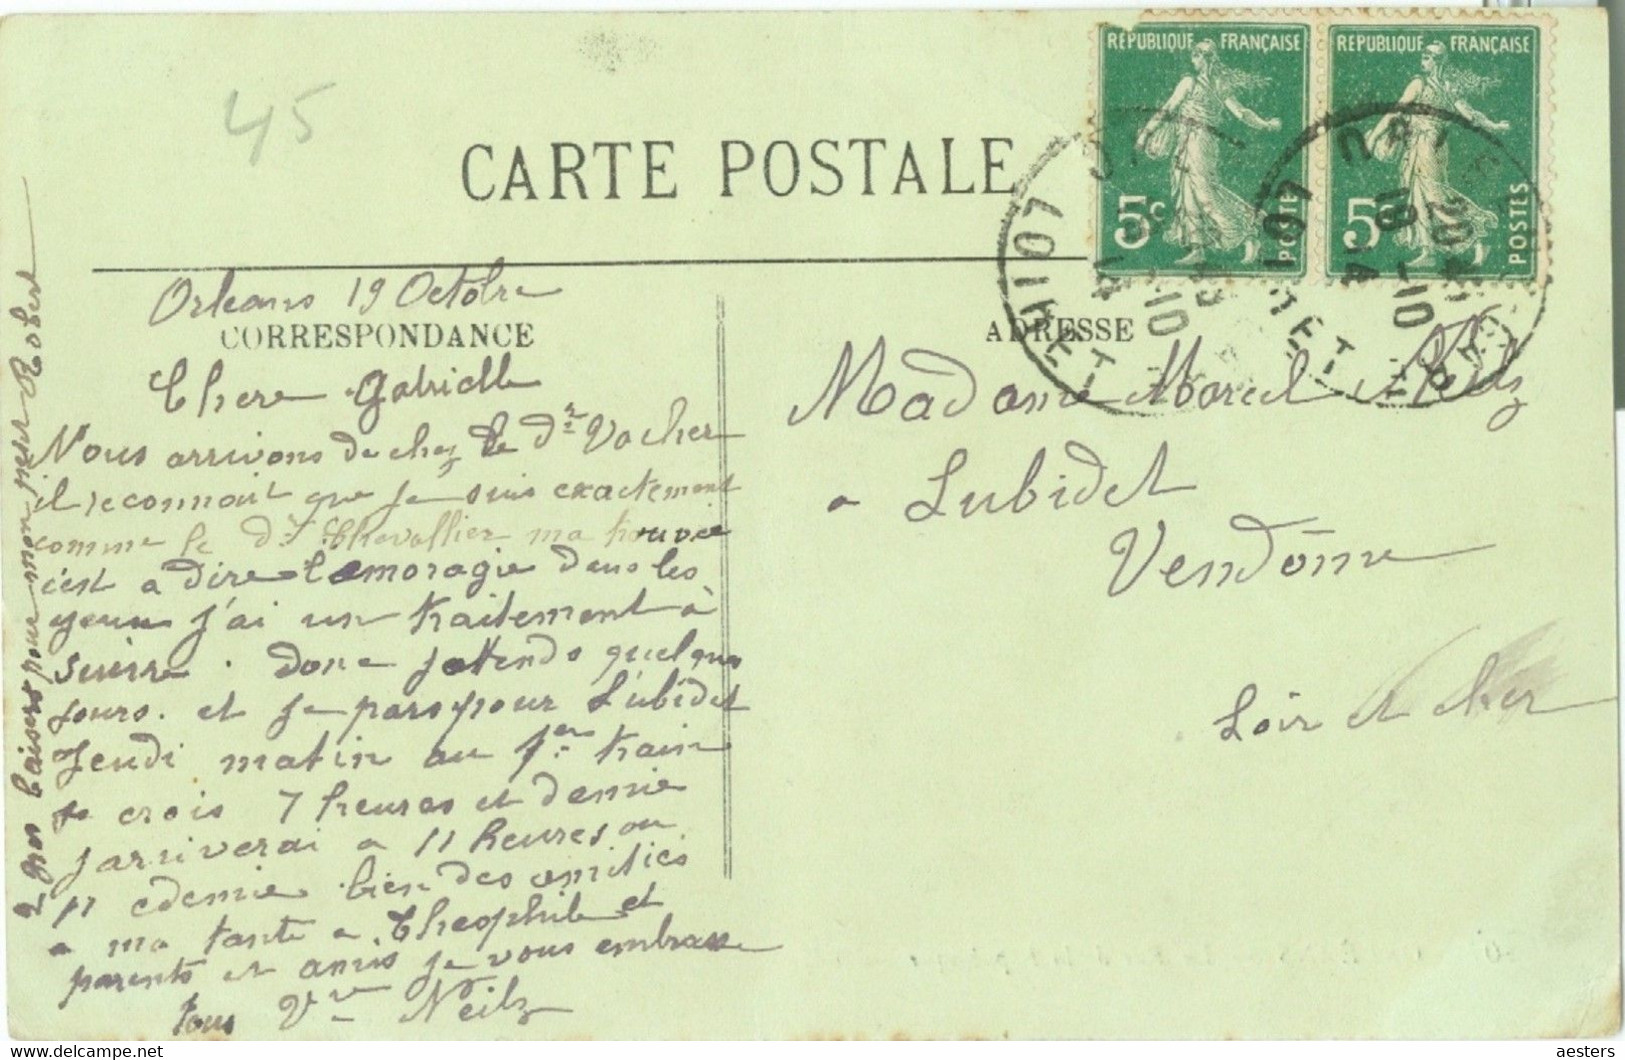 45
CARTE POSTALE
RÉPUBLIQUE FRANÇAISE
5c
POSTES
RÉPUBLIQUE FRANÇAISE
5c
POSTES
LOIRET
18 -10
LOIRET
20
18 -10
Orleans 19 Octobre
CORRESPONDANCE
Chere Gabrielle
Nous arrivons de chez le Dr Vacher
il reconnait que je suis exactement
comme le Dr Chevallier ma trouvée
c'est a dire emoragie dans les
yeux j'ai un traitement à
suivre. donc j'attends quelques
jours. et je pars pour Lubidet
Jeudi matin au 1er train
je crois 7 heures et demie
j'arriverai a 11 heures ou
11 edemie bien des amities
a ma tante a Theophile et
parents et amis je vous embrasse
tous Vve Neilz
2 gros baisers pour mon petit Robert
ADRESSE
Madame Marcel Neilz
a Lubidet
Vendôme
Loir et Cher
aesters